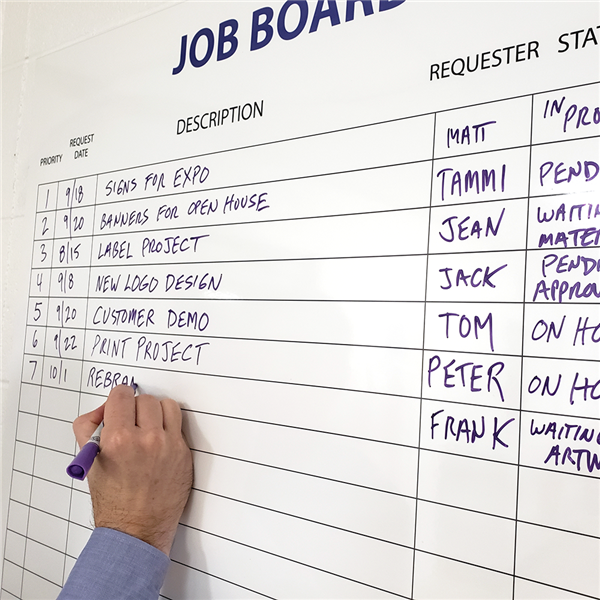 JOB BOARD
PRIORITY REQUEST DATE DESCRIPTION REQUESTER STAT
1 9/18 SIGNS FOR EXPO MATT IN PRO
2 9/20 BANNERS FOR OPEN HOUSE TAMMI PEND
3 8/15 LABEL PROJECT JEAN WAITIN MATER
4 9/8 NEW LOGO DESIGN JACK PENDI APPROV
5 9/20 CUSTOMER DEMO TOM ON HO
6 9/22 PRINT PROJECT PETER ON HO
7 10/1 REBRAN FRANK WAITING ARTW